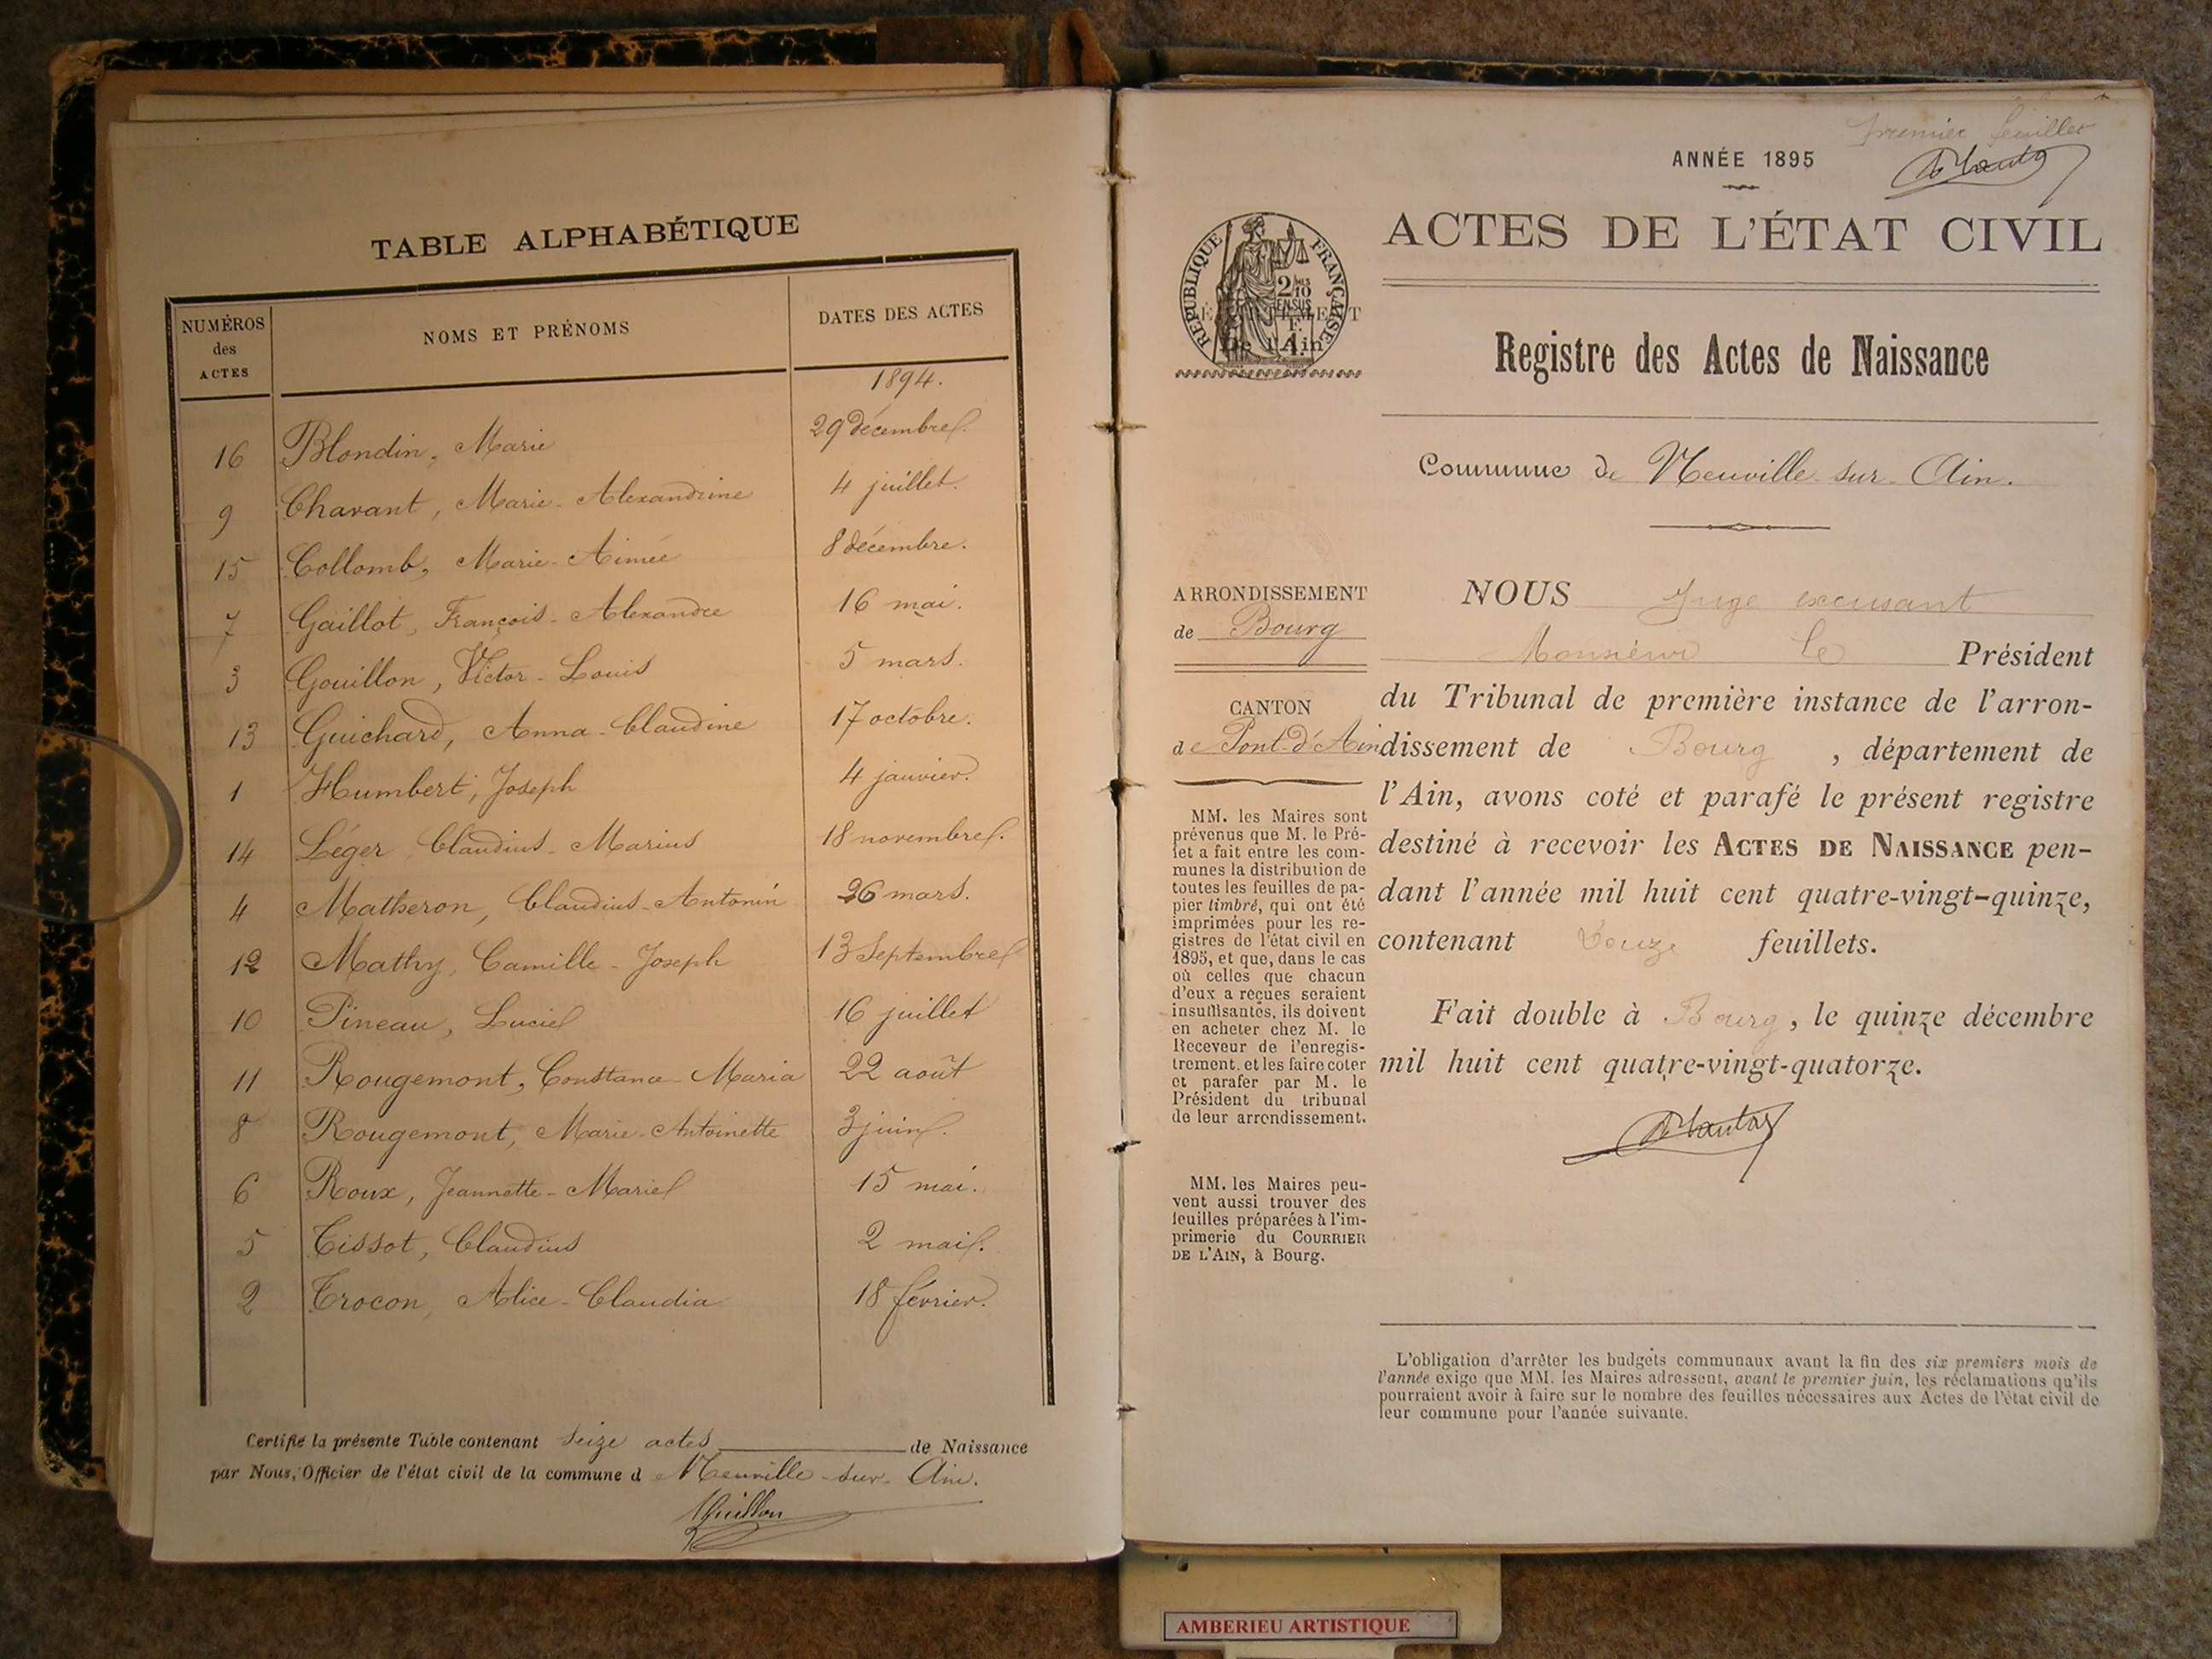 TABLE ALPHABÉTIQUE
NUMÉROS des ACTES
NOMS ET PRÉNOMS
DATES DES ACTES
1894.
16 Blondin, Marie 29 décembre.
9 Charant, Marie-Alexandrine 4 juillet.
15 Collomb, Marie-Aimée 8 décembre.
7 Gaillot, François-Alexandre 16 mai.
3 Gouillon, Victor-Louis 5 mars.
13 Guichard, Anna-Claudine 17 octobre.
1 Humbert, Joseph 4 janvier.
14 Léger, Claudius-Marius 18 novembre.
4 Matheron, Claudius-Antonin 26 mars.
12 Mathy, Camille-Joseph 13 Septembre
10 Pineau, Lucie 16 juillet
11 Rougemont, Constance-Maria 22 août
8 Rougemont, Marie-Antoinette 3 juin.
6 Roux, Jeannette-Marie 15 mai.
5 Tissot, Claudius 2 mai.
2 Trocon, Alice-Claudia 18 février.
Certifié la présente Table contenant seize actes de Naissance
par Nous, Officier de l'état civil de la commune de Neuville-sur-Ain.
premier feuillet
ANNÉE 1895
ACTES DE L'ÉTAT CIVIL
RÉPUBLIQUE FRANÇAISE
2/10 EN SUS
DÉPARTEMENT
De l'Ain
Registre des Actes de Naissance
Commune de Neuville-sur-Ain.
ARRONDISSEMENT
de Bourg
CANTON
de Pont-d'Ain
MM. les Maires sont
prévenus que M. le Pré-
fet a fait entre les com-
munes la distribution de
toutes les feuilles de pa-
pier timbré, qui ont été
imprimées pour les re-
gistres de l'état civil en
1895, et que, dans le cas
où celles que chacun
d'eux a reçues seraient
insuffisantes, ils doivent
en acheter chez M. le
Receveur de l'enregis-
trement, et les faire coter
et parafer par M. le
Président du tribunal
de leur arrondissement.
MM. les Maires peu-
vent aussi trouver des
feuilles préparées à l'im-
primerie du COURRIER
DE L'AIN, à Bourg.
NOUS Juge excusant
Monsieur le Président
du Tribunal de première instance de l'arron-
dissement de Bourg, département de
l'Ain, avons coté et parafé le présent registre
destiné à recevoir les ACTES DE NAISSANCE pen-
dant l'année mil huit cent quatre-vingt-quinze,
contenant douze feuillets.
Fait double à Bourg, le quinze décembre
mil huit cent quatre-vingt-quatorze.
L'obligation d'arrêter les budgets communaux avant la fin des six premiers mois de
l'année exige que MM. les Maires adressent, avant le premier juin, les réclamations qu'ils
pourraient avoir à faire sur le nombre des feuilles nécessaires aux Actes de l'état civil de
leur commune pour l'année suivante.
AMBERIEU ARTISTIQUE